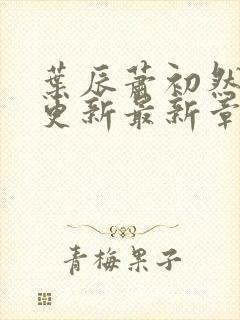 葉辰蕭初然
更新最新章
青梅果子